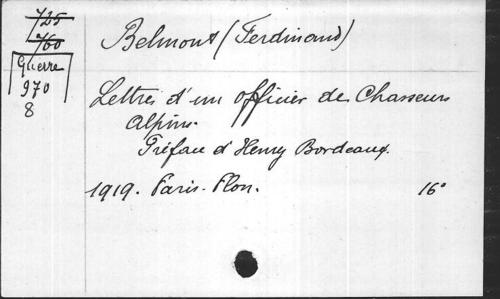 725
760
Guerre
970
8
Belmont (Ferdinand)
Lettres d'un officier de Chasseurs
Alpins.
Préface d'Henry Bordeaux.
1919. Paris. Plon. 16°